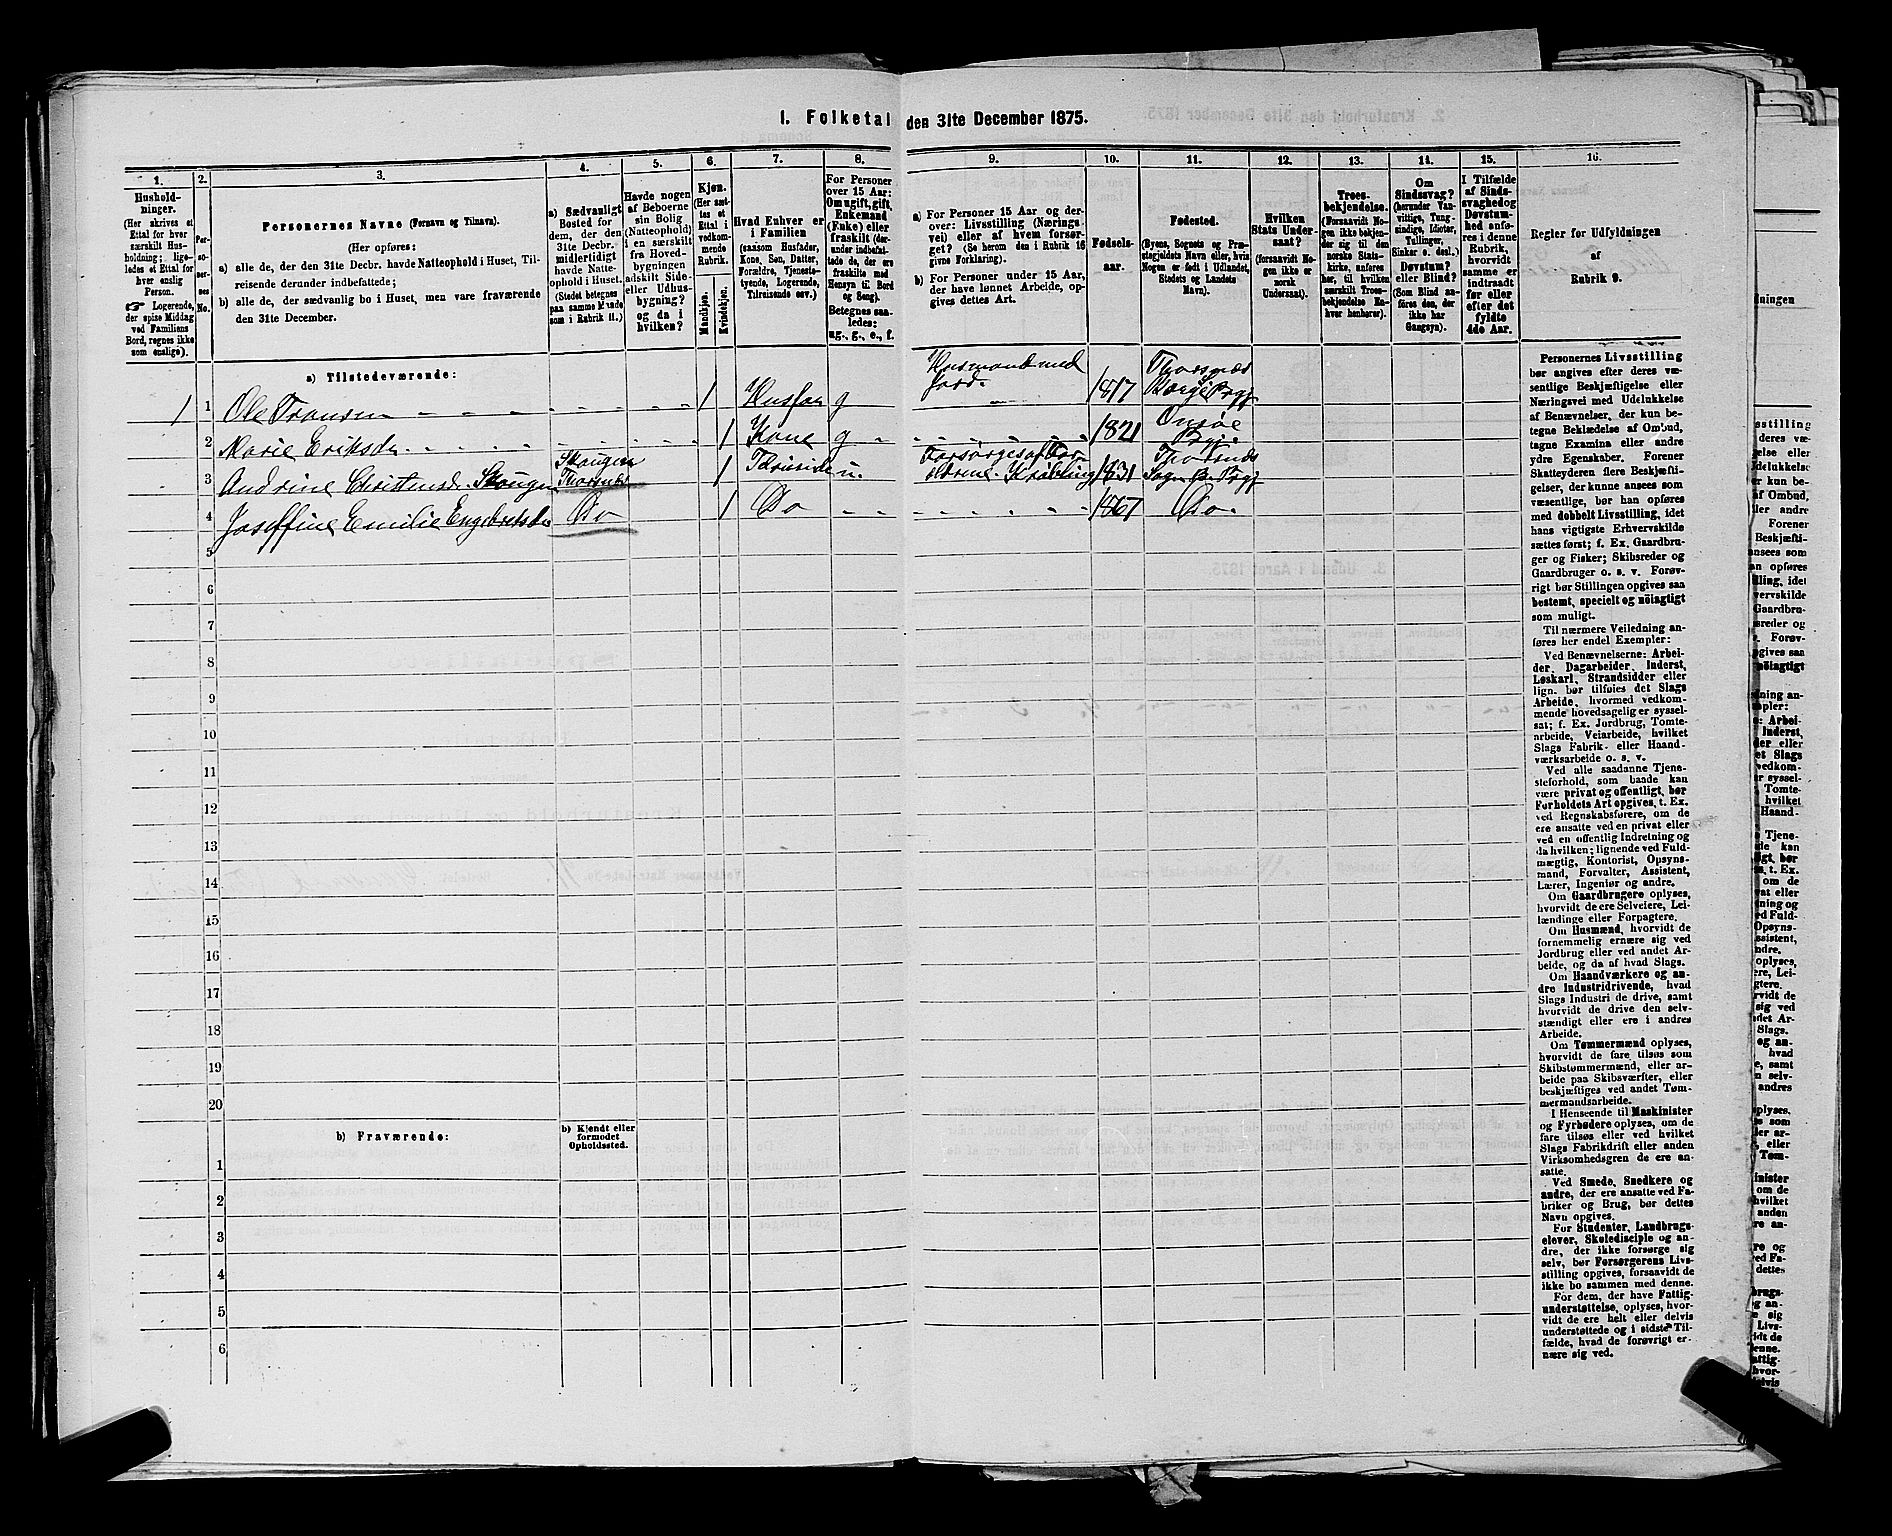 1. Folketal den 31te December 1875.
1.
Hushold-
ninger.
(Her skrives et
Ettal for hver
særskilt Hus-
holdning; lige-
ledes et Ettal for
hver enslig
Person.
☞ Logerende,
der spise Middag
ved Familiens
Bord, regnes ikke
som enslige).
2.
Per-
so-
ner-
nes
No.
3.
Personernes Navne (Fornavn og Tilnavn).
(Her opføres:
a) alle de, der den 31te Decbr. havde Natteophold i Huset, Til-
reisende derunder indbefattede;
b) alle de, der sædvanlig bo i Huset, men vare fraværende
den 31te December.
4.
a) Sædvanligt
Bosted for
dem, der den
31te Decbr.
midlertidigt
havde Natte-
ophold i Huset.
(Stedet betegnes
paa samme Maade
som i Rubrik 11.)
5.
Havde nogen
af Beboerne
sin Bolig
(Natteophold)
i en særskilt
fra Hoved-
bygningen
adskilt Side-
eller Udhus-
bygning?
og da i
hvilken?
6.
Kjøn.
(Her sæt-
tes et
Ettal i
vedkom-
mende
Rubrik.
Mandkjøn.
Kvindekjøn.
7.
Hvad Enhver er
i Familien
(saasom Husfader,
Kone, Søn, Datter,
Forældre, Tjeneste-
tyende, Logerende,
Tilreisende osv.)
8.
For Personer
over 15 Aar:
Om ugift, gift,
Enkemand
(Enke) eller
fraskilt (der-
under indbefat-
tede de, der ere
fraskilte med
Hensyn til Bord
og Seng).
Betegnes saa-
ledes:
ug., g., e., f.
9.
a) For Personer 15 Aar og der-
over: Livsstilling (Nærings-
vei) eller af hvem forsør-
get? (Se herom den i Rubrik 16
givne Forklaring).
b) For Personer under 15 Aar,
der have lønnet Arbeide, op-
gives dettes Art.
10.
Fødsels-
aar.
11.
Fødested.
(Byens, Sognets og Præ-
stegjeldets Navn eller, hvis
Nogen er født i Udlandet,
Stedets og Landets
Navn).
12.
Hvilken
Stats Under-
saat?
(forsaavidt No-
gen ikke er
norsk
Undersaat).
13.
Troes-
bekjendelse.
(Forsaavidt No-
gen ikke bekjen-
der sig til den
norske Stats-
kirke, anføres
her, til hvilken
særskilt Troes-
bekjendelse En-
hver henhører).
14.
Om
Sindssvag?
(herunder Van-
vittige, Tung-
sindige, Idioter,
Tullinger,
Sinker o. desl.).
Døvstum?
eller Blind?
(Som Blind an-
føres den, der
ikke har
Gangsyn).
15.
I Tilfælde
af Sinds-
svaghed og
Døvstum-
hed anfø-
res i denne
Rubrik,
hvorvidt
samme er
indtraadt
før eller
efter det
fyldte
4de Aar.
16.
Regler for Udfyldningen
af
Rubrik 9.
a) Tilstedeværende:
1 1 Ole Fransen 1 Husfar g Husmand med Jord. 1817 Thorsnæs Borge Prgj
2 Marie Eriksdr. 1 Kone g 1821 Onsøe Pgj.
3 Andrine Christensdr. Skougen Skougen Thorsnæs 1 Tilreisende u. Forsørges af For-ældrene. Krøbling 1831 Thorsnæs Sogn Bo Prgj
4 Joseffine Emilie Engebretsdr Do 1 Do 1867 Do.
5
6
7
8
9
10
11
12
13
14
15
16
17
18
19
20
b) Fraværende:
b) Kjendt eller
formodet
Opholdssted.
1
2
3
4
5
6
Personernes Livsstilling
bør angives efter deres væ-
sentlige Beskjæftigelse eller
Næringsvei med Udelukkelse
af Benævnelser, der kun be-
tegne Beklædelse af Ombud,
tagne Examina eller andre
ydre Egenskaber. Forener
Skatteyderen flere Beskjæfti-
gelser, der kunne ansees som
væsentlige, bør han opføres
med dobbelt Livsstilling, idet
hans vigtigste Erhvervskilde
sættes først; f. Ex. Gaardbru-
ger og Fisker; Skibsreder og
Gaardbruger o. s. v. Forøv-
rigt bør Stillingen opgives saa
bestemt, specielt og nöiagtigt
som muligt.
Til nærmere Veiledning an-
føres her endel Exempler:
Ved Benævnelserne: Arbei-
der, Dagarbeider, Inderst,
Løskarl, Strandsidder eller
lign. bør tilføies det Slags
Arbeide, hvormed vedkom-
mende hovedsagelig er syssel-
sat; f. Ex. Jordbrug, Tomte-
arbeide, Veiarbeide, hvilket
Slags Fabrik- eller Haand-
værksarbeide o. s. v.
Ved alle saadanne Tjene-
steforhold, som baade kan
være privat og offentligt, bør
Forholdets Art opgives, t. Ex.
ved Regnskabsførere, om de
ere ansatte ved en privat eller
ved en offentlig Indretning og
da hvilken; lignende ved Fuld-
mægtig, Kontorist, Opsyns-
mand, Forvalter, Assistent,
Lærer, Ingeniør og andre.
Om Gaardbrugere oplyses,
hvorvidt de ere Selveiere, Lei-
lændinge eller Forpagtere.
Om Husmænd, hvorvidt de
fornemmelig ernære sig ved
Jordbrug eller ved andet Ar-
beide, og da af hvad Slags.
Om Haandværkere og an-
dre Industridrivende, hvad
Slags Industri de drive, samt
hvorvidt de drive den selv-
stændigt eller ere i andres
Arbeide.
Om Tømmermænd oplyses,
hvorvidt de fare tilsøs som
Skibstømmermænd, eller ar-
beide paa Skibsværfter, eller
beskjæftiges ved andet Tøm-
mermandsarbeide.
I Henseende til Maskinister
og Fyrbødere oplyses, om de
fare tilsøs eller ved hvilket
Slags Fabrikdrift eller anden
Virksomhedsgren de ere an-
satte.
Ved Smede, Snedkere og
andre, der ere ansatte ved Fa-
briker og Brug, bør dettes
Navn opgives.
For Studenter, Landbrugs-
elever, Skoledisciple og an-
dre, der ikke forsørge sig
selv, bør Forsørgerens Livs-
stilling opgives, forsaavidt de
ikke bo sammen med denne.
For dem, der have Fattig-
understøttelse, oplyses, hvor-
vidt de ere helt eller delvis
understøttede og i sidste Til-
fælde, hvad de forøvrigt er-
nære sig ved.